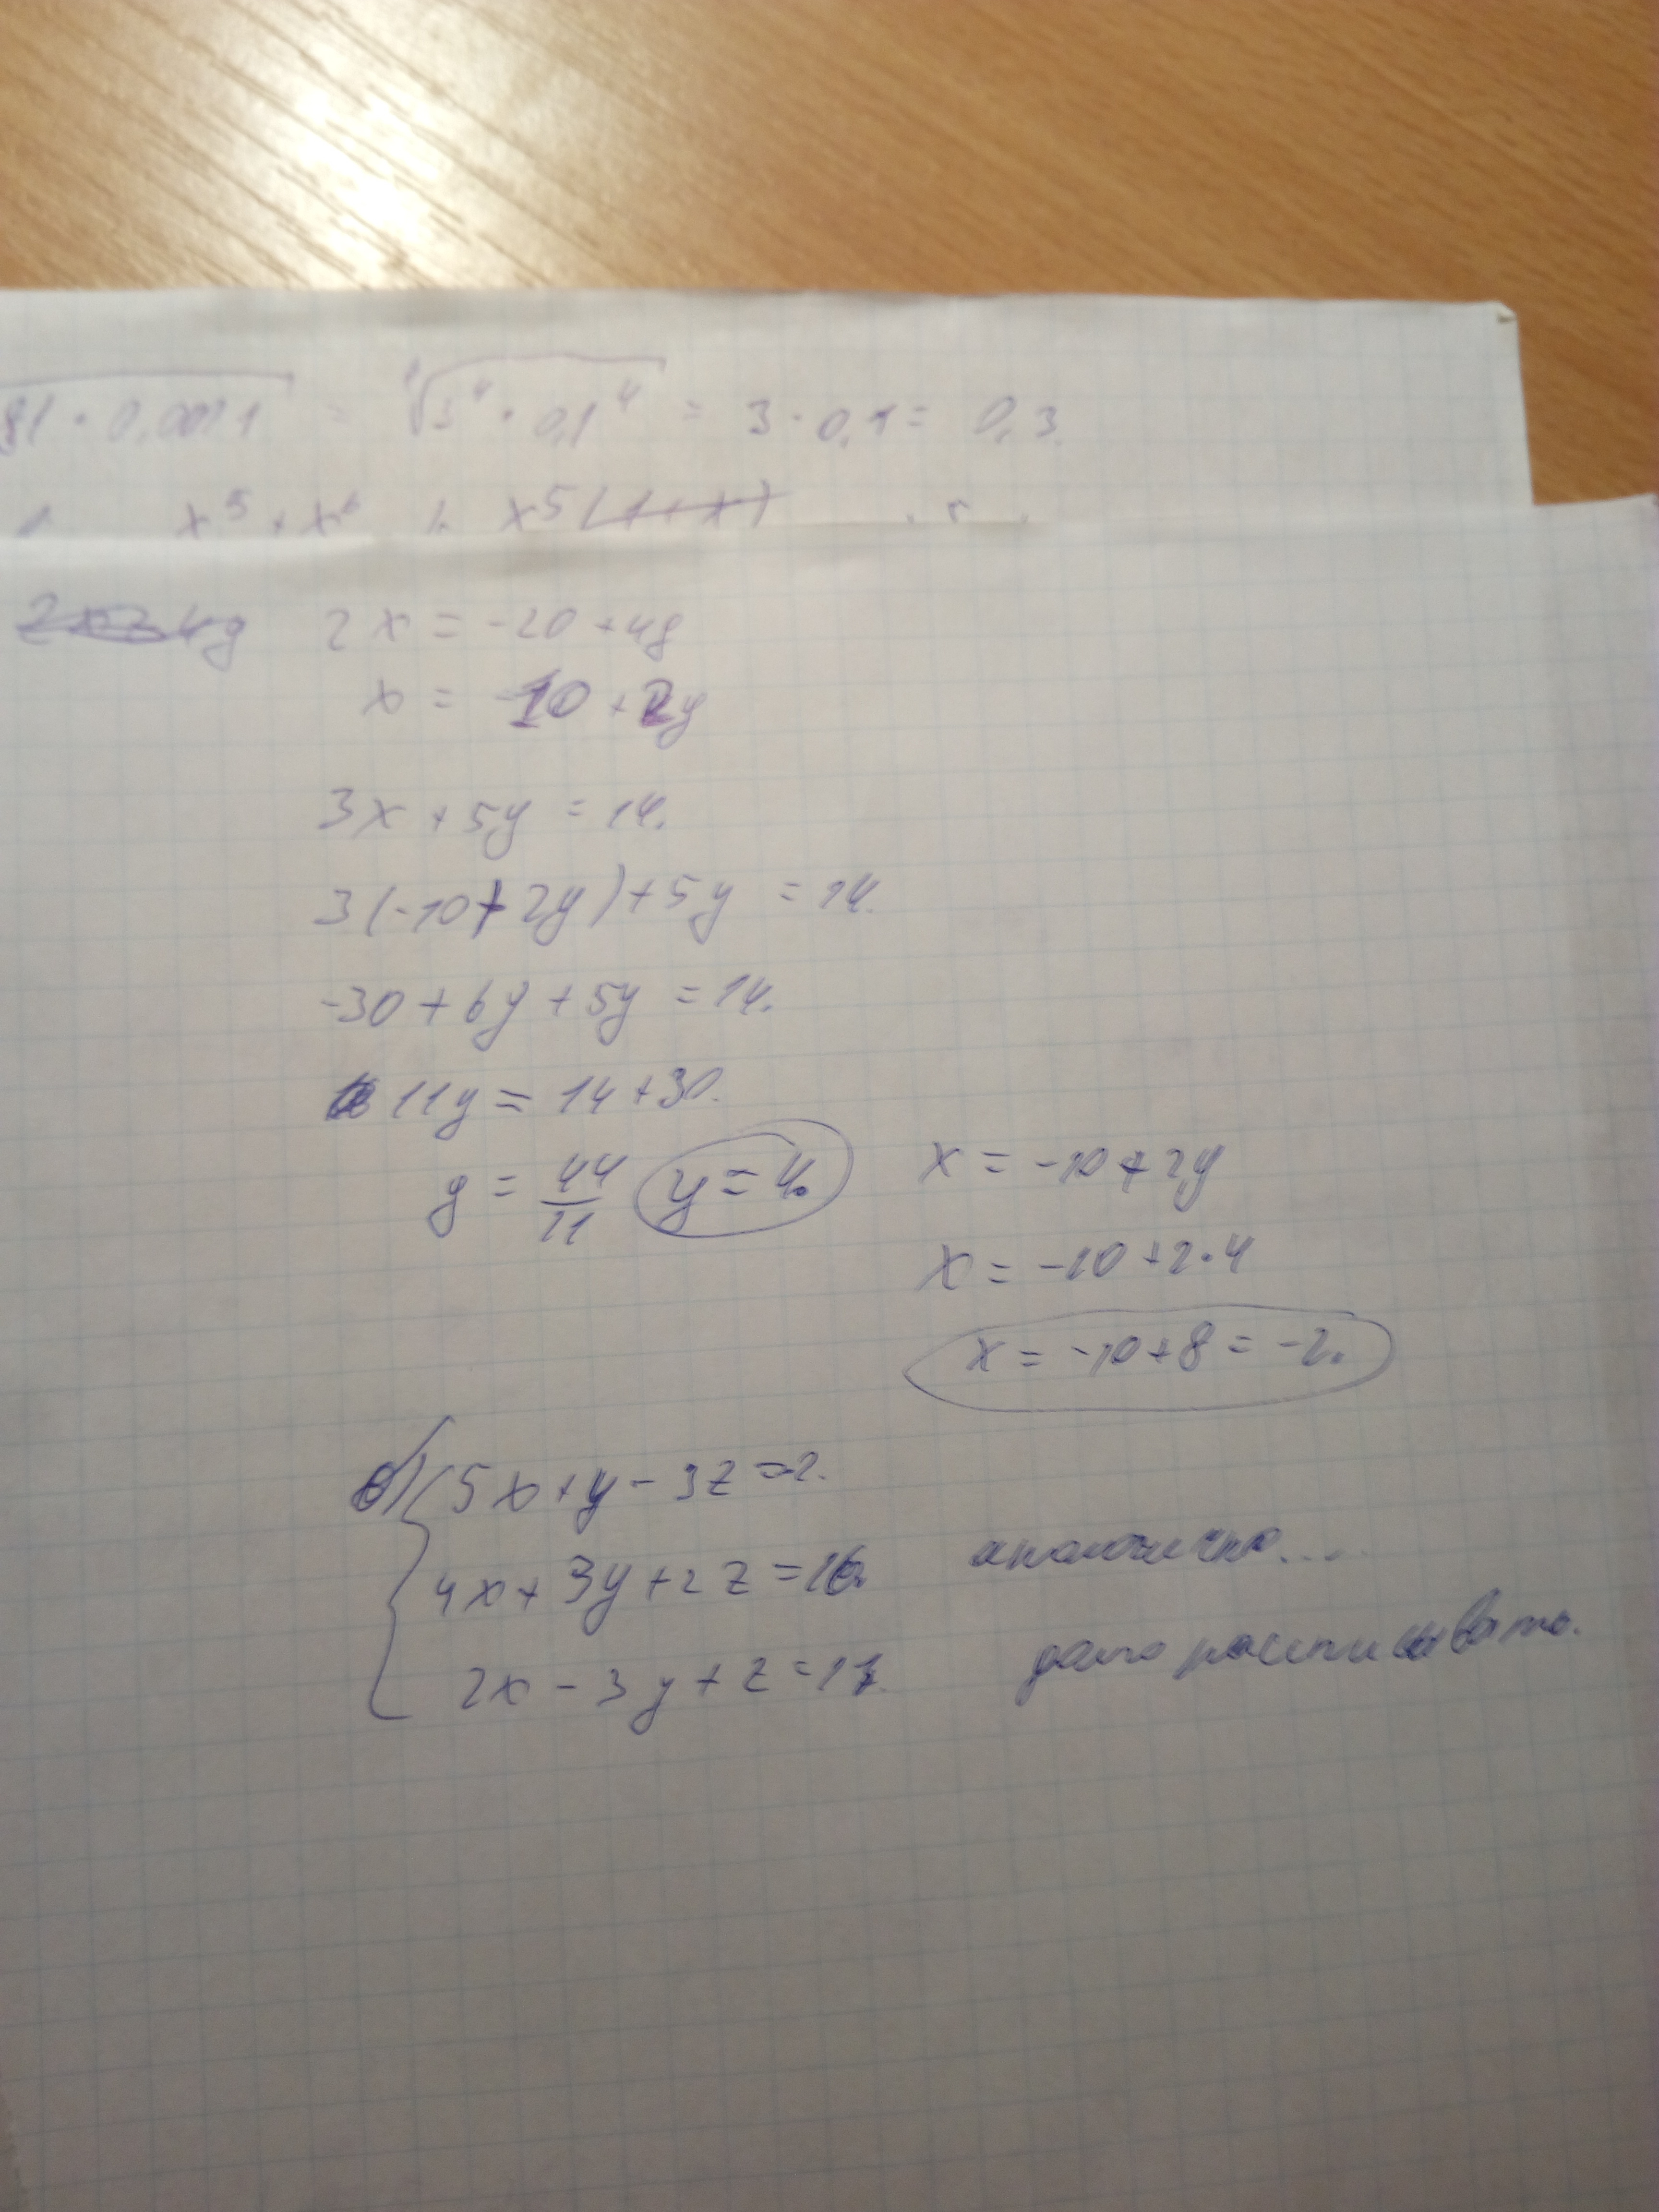 81 · 0,0001 = ⁴√3⁴ · 0,1⁴ = 3 · 0,1 = 0,3.
x⁵ + x⁶ x⁵(1+x)
2x = -20 + 4y
x = -10 + 2y
3x + 5y = 14.
3(-10+2y)+5y = 14.
-30 + 6y + 5y = 14.
11y = 14 + 30.
y = 44/11 y = 4.
x = -10 + 2y
x = -10 + 2·4
x = -10 + 8 = -2.
б) 5x + y - 3z = -2.
4x + 3y + 2z = 16. аналогично....
2x - 3y + z = 17. долго расписывать.